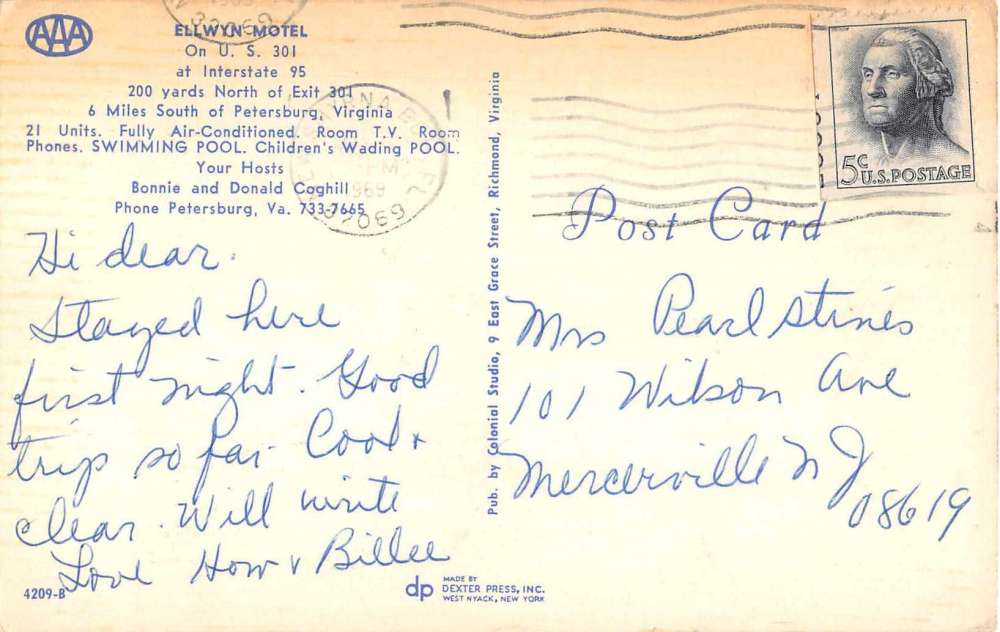 32069
AAA
ELLWYN MOTEL
On U. S. 301
at Interstate 95
200 yards North of Exit 301
6 Miles South of Petersburg, Virginia
21 Units. Fully Air-Conditioned. Room T.V. Room
Phones. SWIMMING POOL. Children's Wading POOL.
Your Hosts
Bonnie and Donald Coghill
Phone Petersburg, Va. 733-7665
PM
1969
32069
Hi dear.
Stayed here
first night. Good
trip so far. Cool &
clear. Will write
Love How & Billee
4209-B
Pub. by Colonial Studio, 9 East Grace Street, Richmond, Virginia
dp
MADE BY
DEXTER PRESS, INC.
WEST NYACK, NEW YORK
5c
U.S. POSTAGE
Post Card
Mrs Pearl Stines
101 Wilson Ave
Mercerville N J
08619